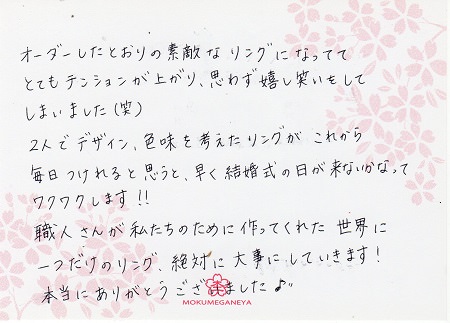 オーダーしたとおりの素敵なリングになってて
とてもテンションが上がり、思わず嬉し笑いをして
しまいました(笑)
2人でデザイン、色味を考えたリングが これから
毎日つけれると思うと、早く結婚式の日が来ないかなって
ワクワクします!!
職人さんが私たちのために作ってくれた 世界に
一つだけのリング、絶対に大事にしていきます!
本当にありがとうございました♪
MOKUMEGANEYA